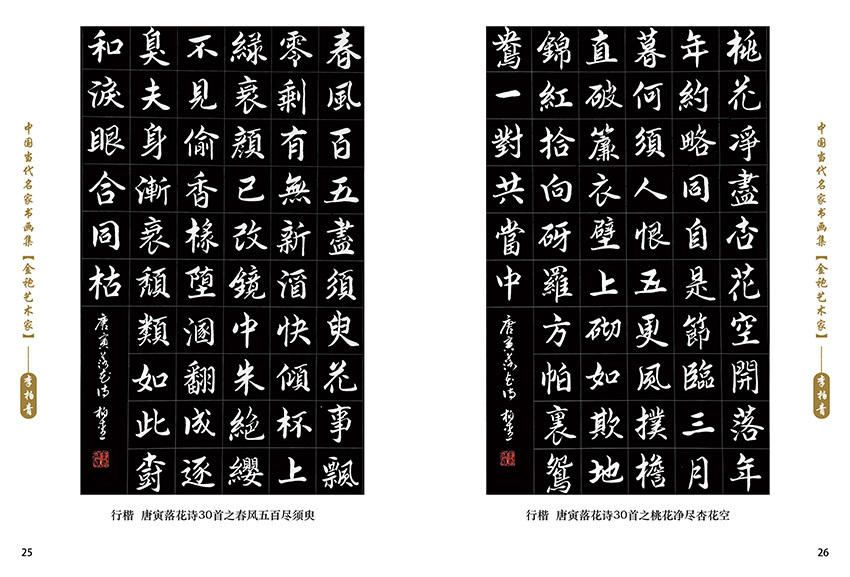 中国当代名家书画集【金袍艺术家】
李柏青
春風百五盡須臾花事飄
零剩有無新酒快傾杯上
緑衰顏已改鏡中朱絕纓
不見偷香椽墮溷翻成逐
臭夫身漸衰頹類如此樹
和淚眼合同枯
唐寅落花诗 柏青
行楷 唐寅落花诗30首之春风五百尽须臾
25
桃花凈盡杏花空開落年
年約略同自是節臨三月
暮何須人恨五更風撲檐
直破簾衣壁上砌如欺地
錦紅拾向砑羅方帕裏鴛
鴦一對共當中
唐寅落花诗 柏青
行楷 唐寅落花诗30首之桃花净尽杏花空
中国当代名家书画集【金袍艺术家】
李柏青
26